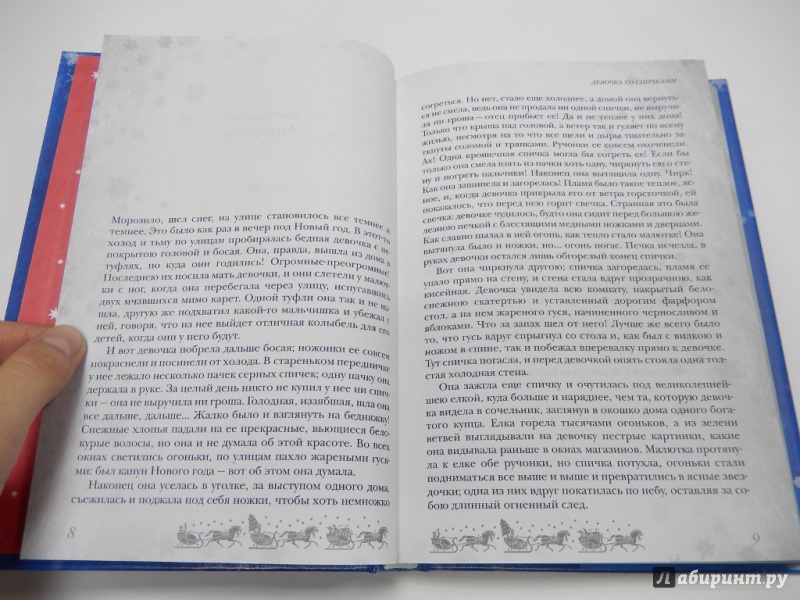 Морозило, шел снег, на улице становилось все темнее и
темнее. Это было как раз в вечер под Новый год. В этот-то
холод и тьму по улицам пробиралась бедная девочка с не-
покрытою головой и босая. Она, правда, вышла из дома в
туфлях, но куда они годились! Огромные-преогромные!
Последнею их носила мать девочки, и они слетели у малют-
ки с ног, когда она перебегала через улицу, испугавшись
двух мчавшихся мимо карет. Одной туфли она так и не на-
шла, другую же подхватил какой-то мальчишка и убежал с
ней, говоря, что из нее выйдет отличная колыбель для его
детей, когда они у него будут.
И вот девочка побрела дальше босая; ножонки ее совсем
покраснели и посинели от холода. В стареньком передничке
у нее лежало несколько пачек серных спичек; одну пачку она
держала в руке. За целый день никто не купил у нее ни спи-
чки — она не выручила ни гроша. Голодная, иззябшая, шла она
все дальше, дальше... Жалко было и взглянуть на бедняжку!
Снежные хлопья падали на ее прекрасные, вьющиеся бело-
курые волосы, но она и не думала об этой красоте. Во всех
окнах светились огоньки, по улицам пахло жареными гуся-
ми: был канун Нового года — вот об этом она думала.
Наконец она уселась в уголке, за выступом одного дома,
съежилась и поджала под себя ножки, чтобы хоть немножко
8
ДЕВОЧКА СО СПИЧКАМИ
согреться. Но нет, стало еще холоднее, а домой она вернуть-
ся не смела, ведь она не продала ни одной спички, не выручи-
ла ни гроша — отец прибьет ее! Да и не теплее у них дома!
Только что крыша над головой, а ветер так и гуляет по всему
жилью, несмотря на то что все щели и дыры тщательно за-
ткнуты соломой и тряпками. Ручонки ее совсем окоченели.
Ах! Одна крошечная спичка могла бы согреть ее! Если бы
только она смела взять из пачки хоть одну, чиркнуть ею о сте-
ну и погреть пальчики! Наконец она вытащила одну. Чирк!
Как она зашипела и загорелась! Пламя было такое теплое, яс-
ное, и, когда девочка прикрыла его от ветра горсточкой, ей
показалось, что перед нею горит свечка. Странная это была
свечка: девочке чудилось, будто она сидит перед большою же-
лезною печкой с блестящими медными ножками и дверцами.
Как славно пылал в ней огонь, как тепло стало малютке! Она
вытянула было и ножки, но... огонь погас. Печка исчезла, в
руках девочки остался лишь обгорелый конец спички.
Вот она чиркнула другою; спичка загорелась, пламя ее
упало прямо на стену, и стена стала вдруг прозрачною, как
кисейная. Девочка увидела всю комнату, накрытый бело-
снежною скатертью и уставленный дорогим фарфором
стол, а на нем жареного гуся, начиненного черносливом и
яблоками. Что за запах шел от него! Лучше же всего было
то, что гусь вдруг спрыгнул со стола и, как был с вилкою и
ножом в спине, так и побежал вперевалку прямо к девочке.
Тут спичка погасла, и перед девочкой опять стояла одна тол-
стая холодная стена.
Она зажгла еще спичку и очутилась под великолепней-
шею елкой, куда больше и наряднее, чем та, которую девоч-
ка видела в сочельник, заглянув в окошко дома одного бога-
того купца. Елка горела тысячами огоньков, а из зелени
ветвей выглядывали на девочку пестрые картинки, какие
она видывала раньше в окнах магазинов. Малютка протяну-
ла к елке обе ручонки, но спичка потухла, огоньки стали
подниматься все выше и выше и превратились в ясные звез-
дочки; одна из них вдруг покатилась по небу, оставляя за со-
бою длинный огненный след.
9
Лабиринт.ру